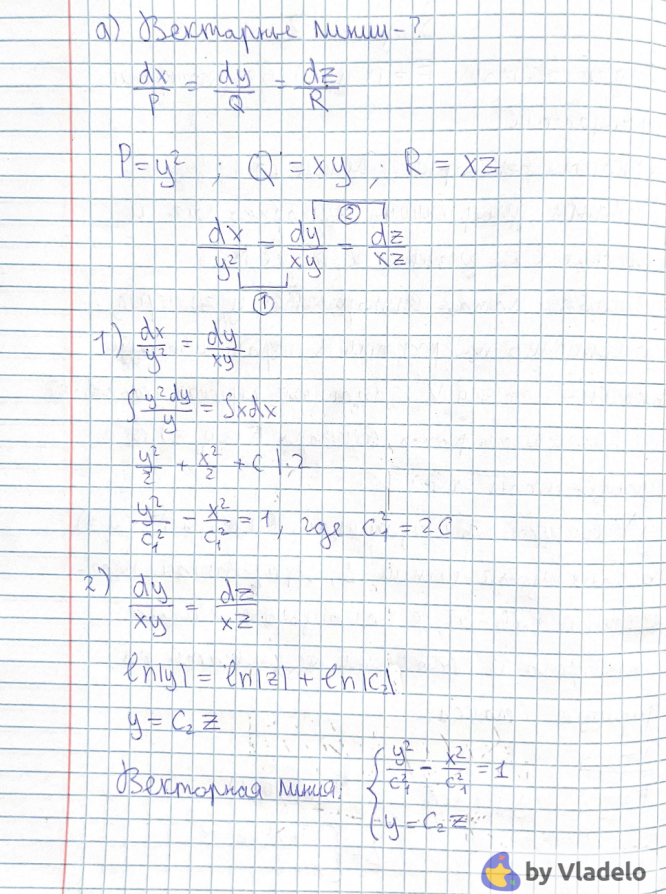 а) Векторные линии-?
dx/P = dy/Q = dz/R
P = y² ; Q = xy ; R = xz
②
dx/y² = dy/xy = dz/xz
①
1) dx/y² = dy/xy
∫ y²dy/y = ∫xdx
y²/2 + x²/2 + C |·2
y²/C₁² - x²/C₁² = 1, где C₁² = 2C
2) dy/xy = dz/xz
ln|y| = ln|z| + ln|C₂|
y = C₂ z
Векторная линия: { y²/C₁² - x²/C₁² = 1
y = C₂ z
by Vladelo